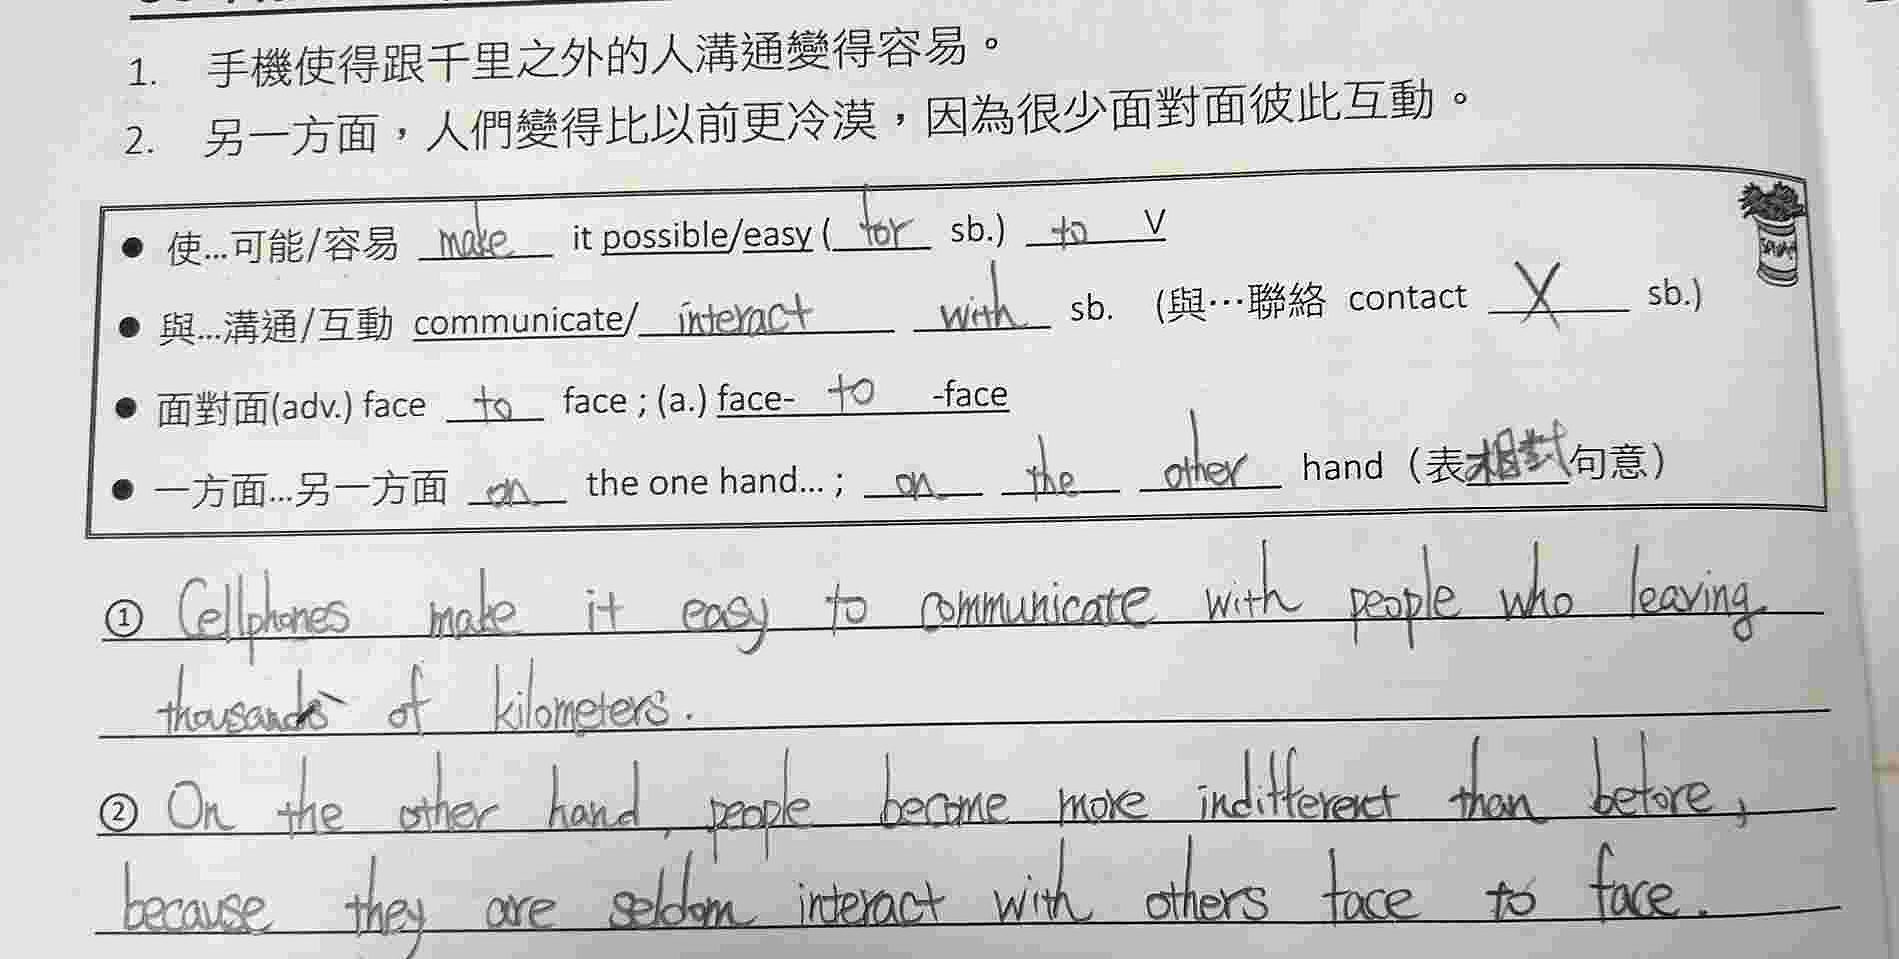 1. 手機使得跟千里之外的人溝通變得容易。
2. 另一方面，人們變得比以前更冷漠，因為很少面對面彼此互動。
● 使...可能/容易 make it possible/easy (for sb.) to V
● 與...溝通/互動 communicate/interact with sb. (與…聯絡 contact X sb.)
● 面對面(adv.) face to face ; (a.) face- to -face
● 一方面...另一方面 on the one hand... ; on the other hand（表相對句意）
① Cellphones make it easy to communicate with people who leaving
thousands of kilometers.
② On the other hand, people become more indifferent than before,
because they are seldom interact with others face to face.